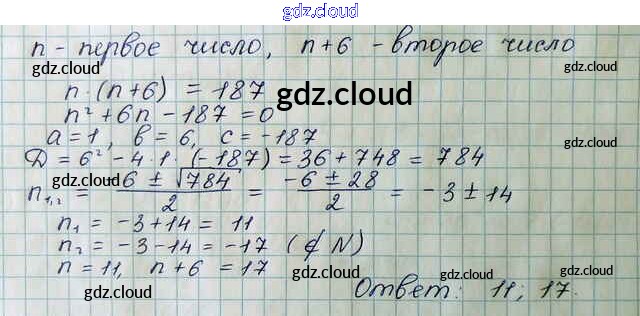 gdz.cloud
n - первое число, n+6 - второе число
gdz.cloud gdz.cloud
n·(n+6) = 187
gdz.cloud
n² + 6n - 187 = 0
a = 1, в = 6, c = -187
Д = 6² - 4·1·(-187) = 36 + 748 = 784
gdz.cloud
n₁,₂ = (-6 ± √784)/2 = (-6 ± 28)/2 = -3 ± 14
n₁ = -3 + 14 = 11
n₂ = -3 - 14 = -17 (∉ N)
n = 11, n+6 = 17
gdz.cloud gdz.cloud
Ответ: 11; 17.
gdz.cloud gdz.cloud